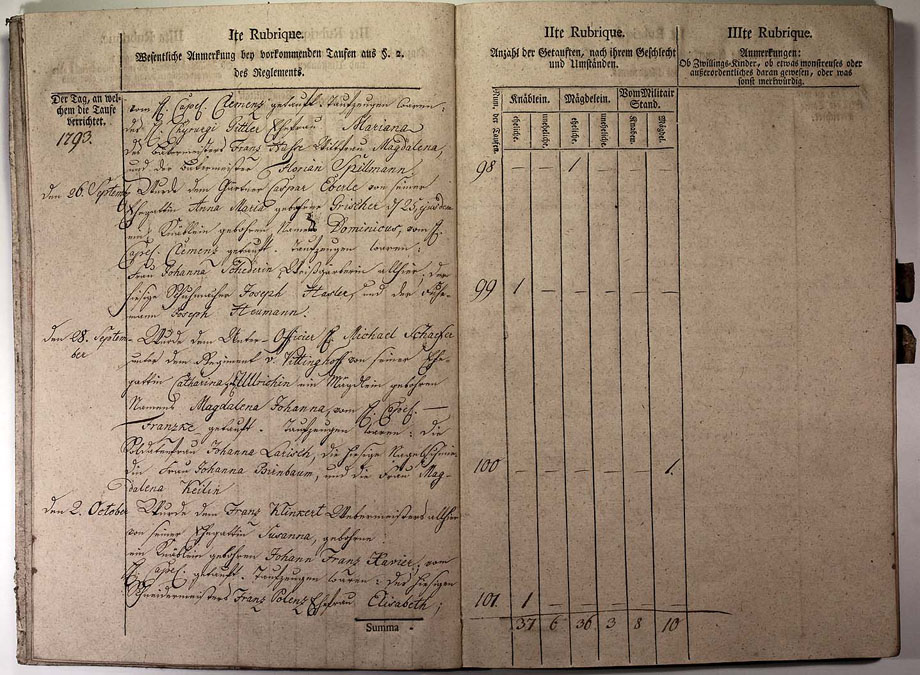 Ite Rubrique.
Wesentliche Anmerkung bey vorkommenden Taufen aus §. 2.
des Reglements.
Der Tag, an wel-
chem die Taufe
verrichtet.
1793.
vom H. Capel. Clemens getauft. Taufzeugen waren:
des H. Chyrurgi Pittler Ehefrau Mariana
des Franz Wittfrau Magdalena,
und der Florian Spillmann
den 26. Septem Wurde dem Gärtner Caspar Eberle von seiner
Ehegattin Anna Maria gebohrne Grischer
ein Knäblein gebohren Namens Dominicus, vom H.
Capel. Clemens getauft. Taufzeugen waren:
Frau Johanna allhier, der
hiesige Schuhmacher Joseph Hasler, und der
Joseph Heumann.
den 28. Septem- Wurde dem Unter-Officier H. Michael Schaefer
ber unter dem Regiment v. Vittinghoff von seiner Ehe-
gattin Catharina Ullbrichin ein Mägdlein gebohren
Namens Magdalena Johanna, vom H. Capel.
Franzke getauft. Taufzeugen waren: die
Soldatenfrau Johanna Larisch, die hiesige
Frau Johanna Birnbaum, und die Frau Mag-
dalena Keilin
den 2. October Wurde dem Franz Klinkert Webermeister allhier
von seiner Ehegattin Susanna, gebohrne
ein Knäblein gebohren Johann Franz Xavier, vom
H. Capel. getauft. Taufzeugen waren: des hiesigen
Schneidermeisters Franz Polenz Ehefrau Elisabeth;
Summa
IIte Rubrique.
Anzahl der Getauften, nach ihrem Geschlecht
und Umständen.
Num. der Taufen.
Knäblein. Mägdelein. Vom Militair
Stand.
eheliche. uneheliche. eheliche. uneheliche. Knaben. Mägdel.
98 — — 1 — — —
99 1 — — — — —
100 — — — — — 1.
101. 1 — — — — —
37 6 36 3 8 10
IIIte Rubrique.
Anmerkungen:
Ob Zwillings-Kinder, ob etwas monstreuses oder
außerordentliches daran gewesen, oder was
sonst merkwürdig.